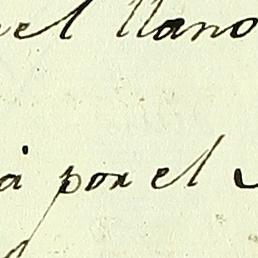 el llano
á por el